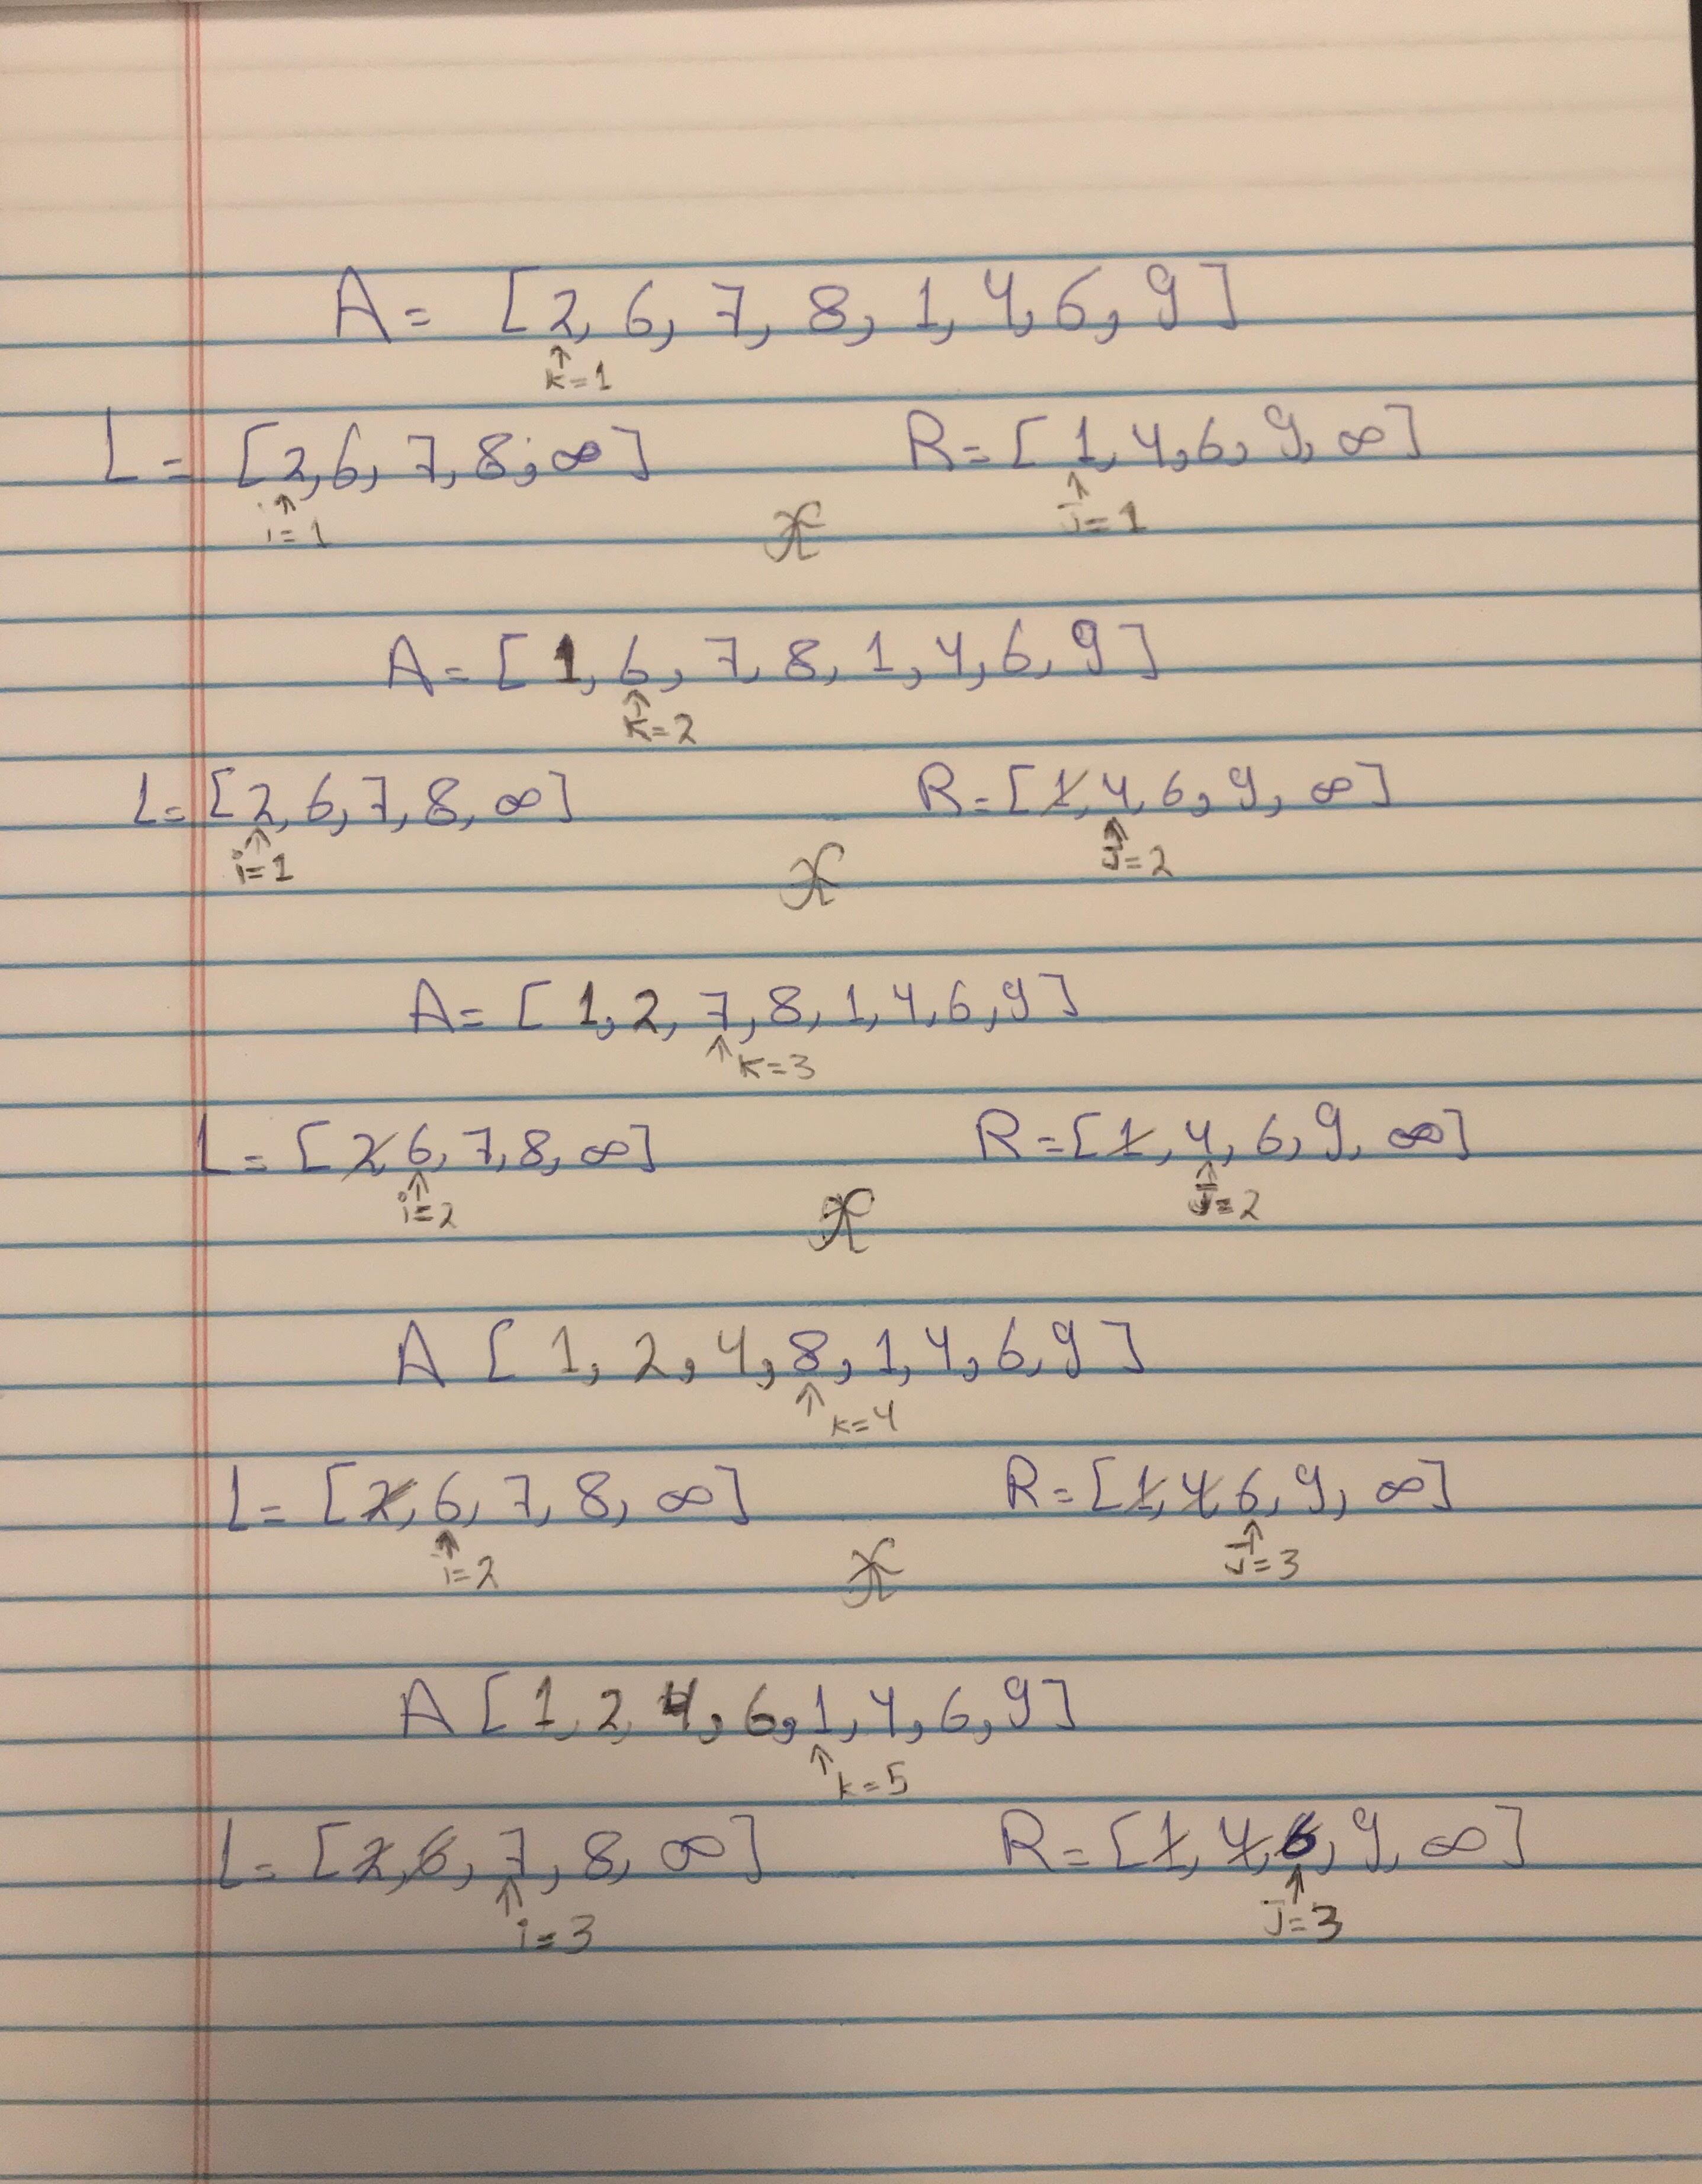 A= [2, 6, 7, 8, 1, 4, 6, 9]
↑
k=1
L= [2,6, 7, 8, ∞] R=[1,4,6,9,∞]
↑ ↑
i=1 J=1
A=[1, 6, 7, 8, 1, 4, 6, 9]
↑
K=2
L=[2, 6, 7, 8, ∞] R=[1,4,6,9,∞]
↑ ↑
i=1 J=2
A= [1, 2, 7, 8, 1, 4, 6, 9]
↑ K=3
L= [2 6, 7, 8, ∞] R=[1, 4, 6, 9, ∞]
↑ ↑
i=2 J=2
A [1, 2, 4, 8, 1, 4, 6, 9]
↑ K=4
L= [2, 6, 7, 8, ∞] R=[1,4 6, 9, ∞]
↑ ↑
i=2 J=3
A [1, 2 4, 6, 1, 4, 6, 9]
↑ k=5
L= [2,6, 7, 8, ∞] R=[1, 4, 6, 9, ∞]
↑ ↑
i=3 J=3